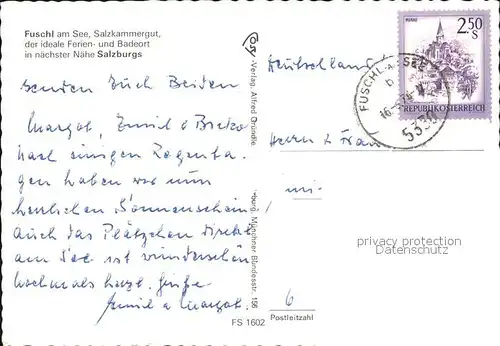 Fuschl am See, Salzkammergut,
der ideale Ferien- und Badeort
in nächster Nähe Salzburgs
senden Euch Beiden
Margot, Emil &
nach einigen Regenta-
gen haben wir nun
herrlichen Sonnenschein
auch das Plätzchen direkt
am See ist wunderschön
Nochmals herzl. Grüße
Emil u Margot.
-Verlag, Alfred Gründle
burg, Münchner Bundesstr. 156
FS 1602
Deutschland
Herrn & Frau
6
Postleitzahl
2.50
S
REPUBLIK ÖSTERREICH
FUSCHL A. SEE
5330
privacy protection
Datenschutz